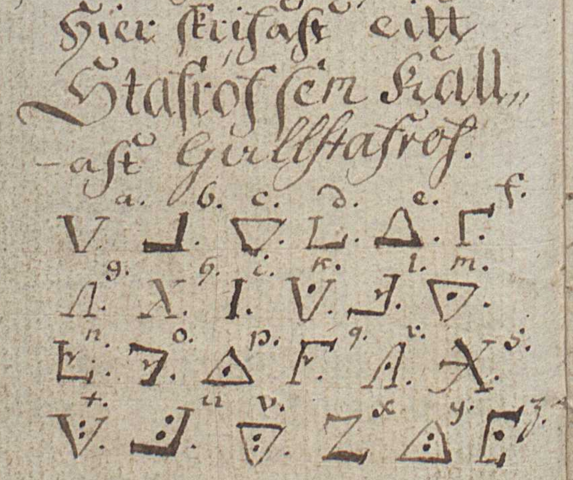 Hier skrifast eitt
Stafróf sem kall„
-ast Gullstafrof.
a. b. c. d. e. f.
g. h. i. k. l. m.
n. o. p. q. r. s.
t. u v. x y. z.